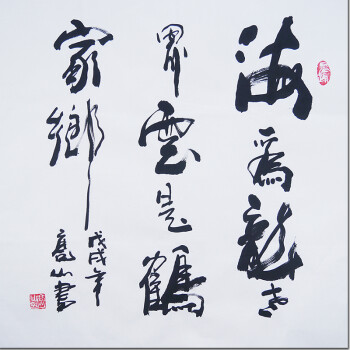 海為龍世
界雲是鶴
家鄉
戊戌年
亮山書